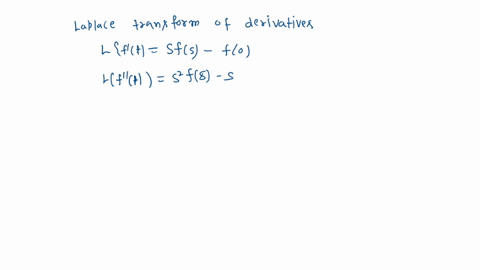 Laplace transform of derivatives
L{f'(t) = Sf(s) - f(0)
L(f''(t)) = s²f(s) - s